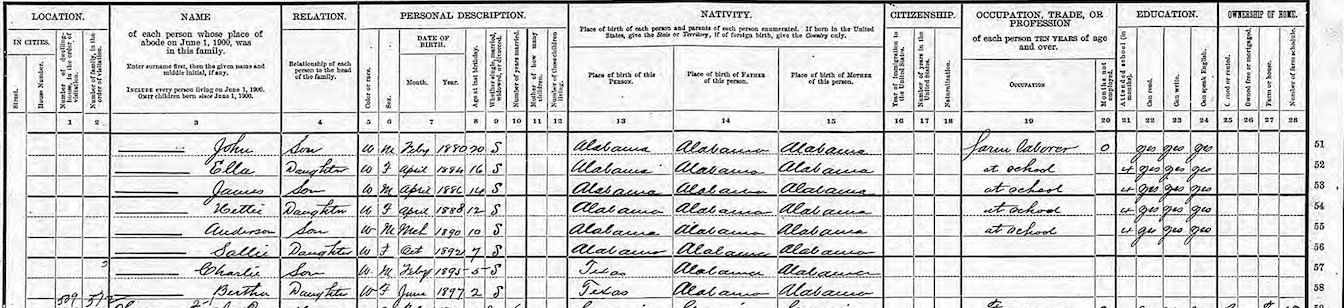 LOCATION. NAME RELATION. PERSONAL DESCRIPTION. NATIVITY. CITIZENSHIP. OCCUPATION, TRADE, OR PROFESSION EDUCATION. OWNERSHIP OF HOME.
IN CITIES. Street. House Number. Number of dwelling-house, in the order of visitation. Number of family, in the order of visitation.
of each person whose place of abode on June 1, 1900, was in this family.
Enter surname first, then the given name and middle initial, if any.
INCLUDE every person living on June 1, 1900.
OMIT children born since June 1, 1900.
Relationship of each person to the head of the family.
Color or race. Sex. DATE OF BIRTH. Month. Year. Age at last birthday. Whether single, married, widowed, or divorced. Number of years married. Mother of how many children. Number of these children living.
Place of birth of each person and parents of each person enumerated. If born in the United States, give the State or Territory; if of foreign birth, give the Country only.
Place of birth of this PERSON. Place of birth of FATHER of this person. Place of birth of MOTHER of this person.
Year of immigration to the United States. Number of years in the United States. Naturalization.
of each person TEN YEARS of age and over.
OCCUPATION Months not employed.
Attended school (in months). Can read. Can write. Can speak English.
Owned or rented. Owned free or mortgaged. Farm or house. Number of farm schedule.
1 2 3 4 5 6 7 8 9 10 11 12 13 14 15 16 17 18 19 20 21 22 23 24 25 26 27 28
John Son W M Feby 1880 20 S Alabama Alabama Alabama farm laborer 0 yes yes yes 51
Ella Daughter W F April 1884 16 S Alabama Alabama Alabama at school 4 yes yes yes 52
James Son W M April 1886 14 S Alabama Alabama Alabama at school 4 yes yes yes 53
Hettie Daughter W F April 1888 12 S Alabama Alabama Alabama at school 4 yes yes yes 54
Anderson Son W M Mch 1890 10 S Alabama Alabama Alabama at school 4 yes yes yes 55
Sallie Daughter W F Oct 1892 7 S Alabama Alabama Alabama 56
Charlie Son W M Feby 1895 5 S Texas Alabama Alabama 57
Bertha Daughter W F June 1897 2 S Texas Alabama Alabama 58